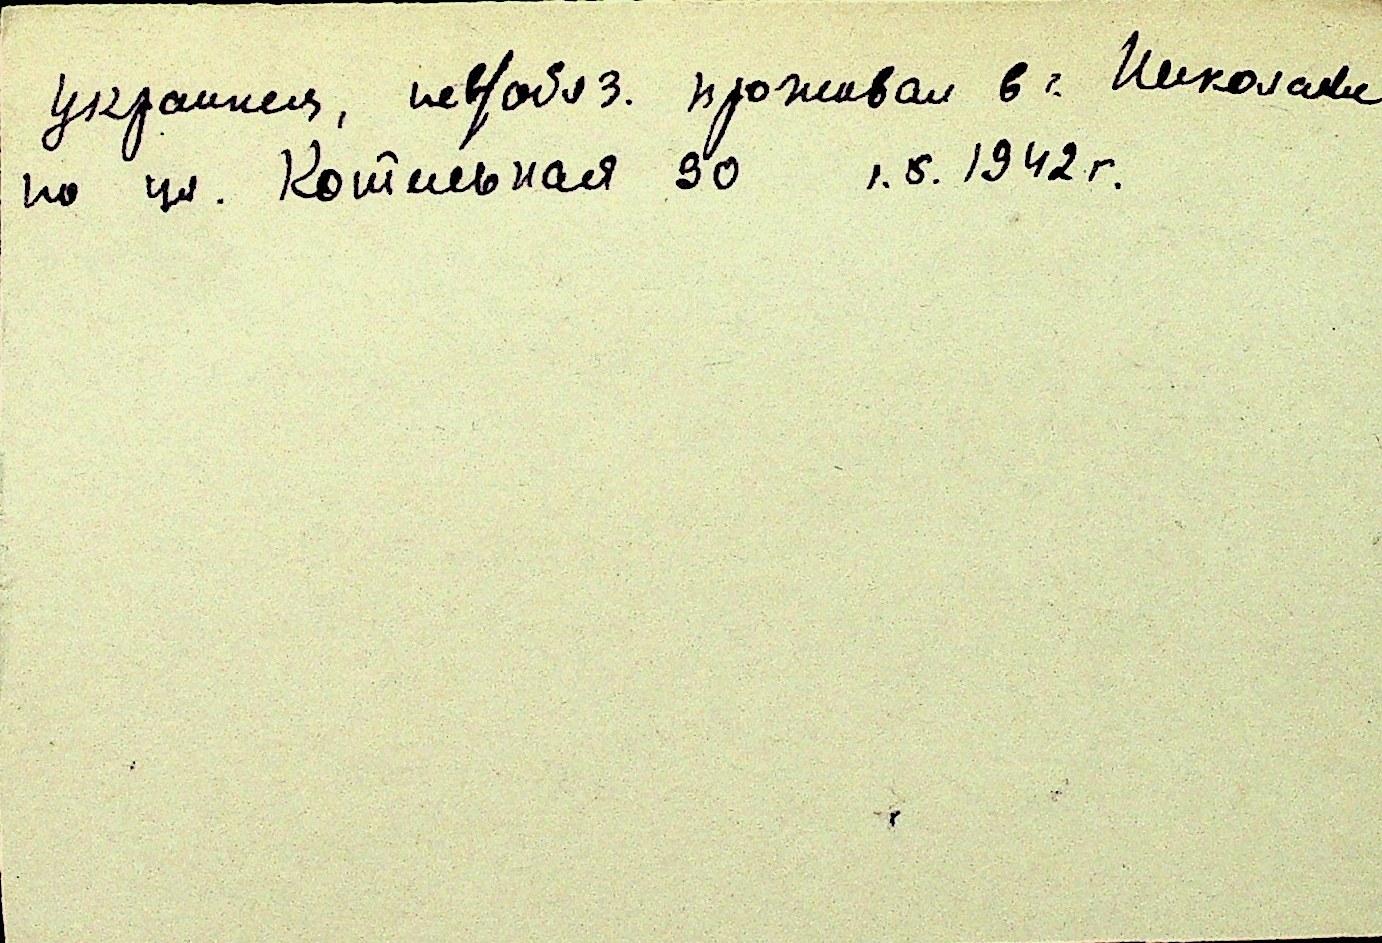 украинец, нев/обяз. проживал в г. Николаеве
по ул. Котельная 90 1.8.1942 г.